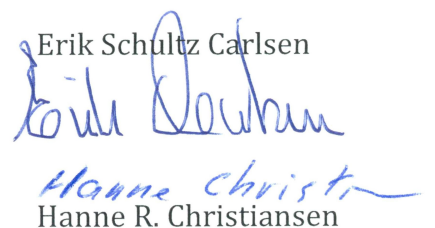 Erik Schultz Carlsen
Erik
Hanne Christ
Hanne R. Christiansen